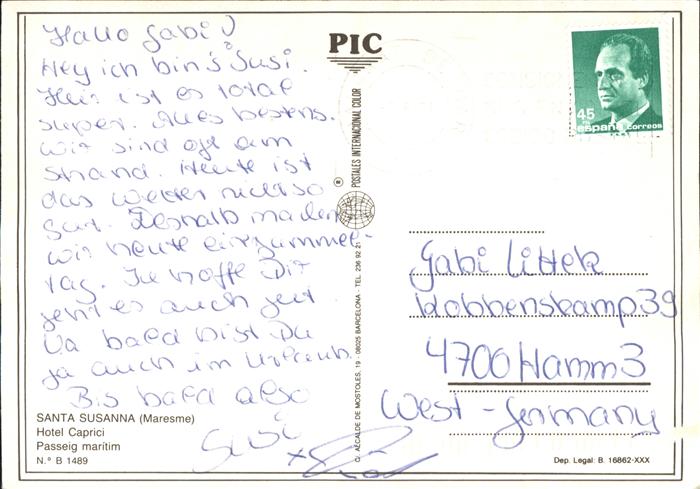 Hallo Gabi!
Hey ich bin's Susi.
Hier ist es total
super. Alles bestens.
Wir sind oft am
Strand. Heute ist
das Wetter nicht so
gut. Deshalb machen
wir heute ein Gammel-
tag. Ich hoffe Dir
geht es auch gut.
Na bald bist Du
ja auch im Urlaub.
Bis bald also
Susi
SANTA SUSANNA (Maresme)
Hotel Caprici
Passeig marítim
N.º B 1489
PIC
POSTALES INTERNACIONAL COLOR
®
C/. ALCALDE DE MOSTOLES, 19 - 08025 BARCELONA - TEL. 236 92 21
45
PTA
españa correos
Gabi Littek
Hobbenskamp 39
4700 Hamm 3
West-Germany
Dep. Legal: B. 16862-XXX